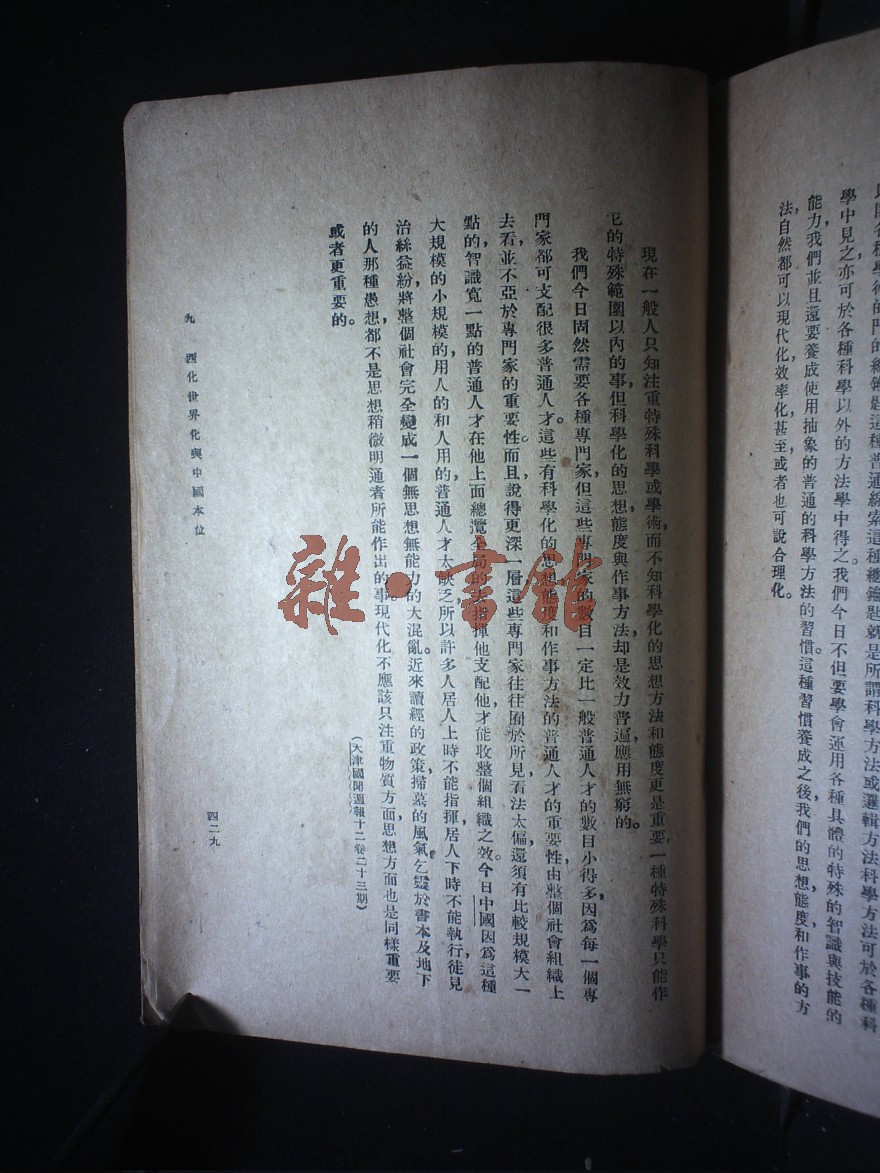 學中見之，亦可於各種科學以外的方法學中得之。我們今日不但要學會運用各種具體的特殊的智識與技能的
能力，我們並且還要養成使用抽象的普通的科學方法的習慣。這種習慣養成之後，我們的思想態度和作事的方
法，自然都可以現代化，效率化，甚至或者也可說合理化。
現在一般人只知注重特殊科學或學術，而不知科學化的思想方法和態度更是重要。一種特殊科學只能作
它的特殊範圍以內的事，但科學化的思想態度與作事方法，却是效力普遍應用無窮的。
我們今日固然需要各種專門家，但這些專門家的數目一定比一般普通人才的數目小得多，因爲每一個專
門家都可支配很多普通人才。這些有科學化的思想態度和作事方法的普通人才的重要性，由整個社會組織上
去看，並不亞於專門家的重要性。而且說得更深一層，這些專門家往往囿於所見，看法太偏，還須有比較規模大一
點的，智識寬一點的普通人才在他上面總攬全局的去指揮他支配他，才能收整個組織之效。今日中國因爲這種
大規模的小規模的用人的和人用的普通人才太缺乏，所以許多人居人上時不能指揮，居人下時不能執行，徒見
治絲益紛，將整個社會完全變成一個無思想無能力的大混亂。近來讀經的政策，掃墓的風氣，乞靈於書本及地下
的人那種愚想，都不是思想稍微明通者所能作出的事。現代化不應該只注重物質方面，思想方面也是同樣重要
或者更重要的。
（天津國聞週報十二卷二十三期）
九 西化世界化與中國本位
四二九
雜·書館